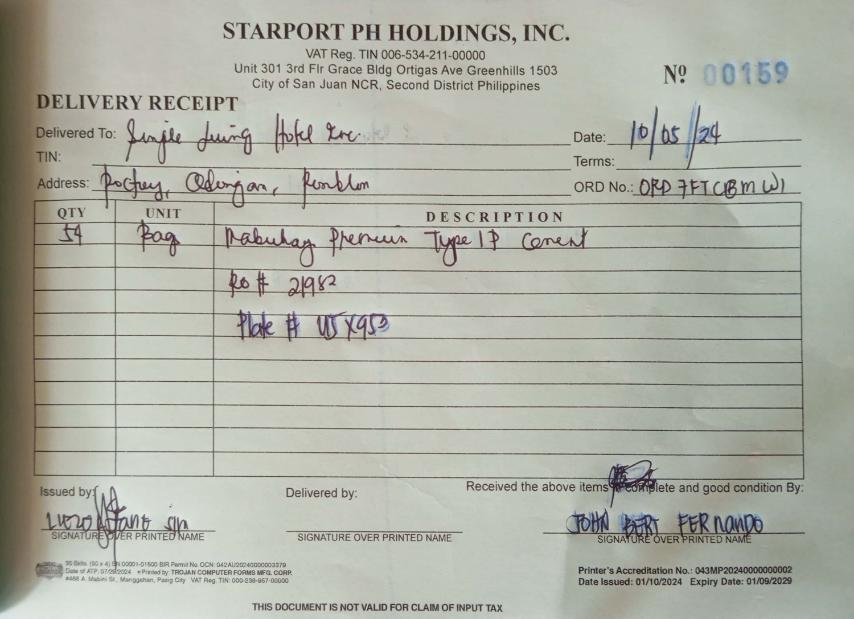 STARPORT PH HOLDINGS, INC.
VAT Reg. TIN 006-534-211-00000
Unit 301 3rd Flr Grace Bldg Ortigas Ave Greenhills 1503
City of San Juan NCR, Second District Philippines
Nº 00159
DELIVERY RECEIPT
Delivered To: Simple Living Hotel Inc.
Date: 10/05/24
TIN:
Terms:
Address: Odiongan, Romblon
ORD No.: ORD 7FTCBMW1
QTY UNIT DESCRIPTION
54 Bag Mabuhay Premium Type 1P Cement
Ro # 21982
Plate # UVX953
Issued by:
Delivered by:
Received the above items complete and good condition By:
JOHN BERT FERNANDO
SIGNATURE OVER PRINTED NAME
SIGNATURE OVER PRINTED NAME
SIGNATURE OVER PRINTED NAME
35 Bklts. (50 x 4) SN 00001-01500 BIR Permit No. OCN: 042AU20240000003379
Date of ATP: 07/29/2024 Printed by: TROJAN COMPUTER FORMS MFG. CORP.
#466 A. Mabini St., Manggahan, Pasig City VAT Reg. TIN: 000-238-957-00000
Printer's Accreditation No.: 043MP20240000000002
Date Issued: 01/10/2024 Expiry Date: 01/09/2029
THIS DOCUMENT IS NOT VALID FOR CLAIM OF INPUT TAX